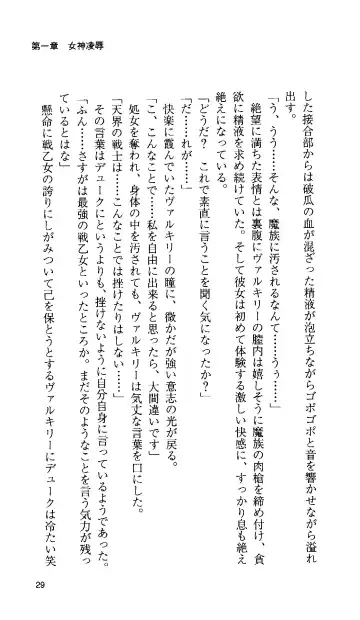 第一章　女神凌辱
した接合部からは破瓜の血が混ざった精液が泡立ちながらゴボゴボと音を響かせながら溢れ
出す。
「う、うう……そんな、魔族に汚されるなんて……うう……」
絶望に満ちた表情とは裏腹にヴァルキリーの膣内は嬉しそうに魔族の肉槍を締め付け、貪
欲に精液を求め続けていた。そして彼女は初めて体験する激しい快感に、すっかり息も絶え
絶えになっている。
「どうだ？　これで素直に言うことを聞く気になったか？」
「だ……れが……」
快楽に霞んでいたヴァルキリーの瞳に、微かだが強い意志の光が戻る。
「こ、こんなことで……私を自由に出来ると思ったら、大間違いです」
処女を奪われ、身体の中を汚されても、ヴァルキリーは気丈な言葉を口にした。
「天界の戦士は……こんなことでは挫けたりはしない……」
その言葉はデュークにというよりも、挫けないように自分自身に言っているようであった。
「ふん……さすがは最強の戦乙女といったところか。まだそのようなことを言う気力が残っ
ているとはな」
懸命に戦乙女の誇りにしがみついて己を保とうとするヴァルキリーにデュークは冷たい笑
29